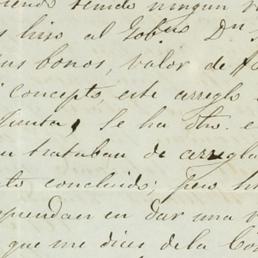 tenido ningun
hizo al Gob.no Dn
bonos, valor de
concepto, este arreglo
Se ha dho.
trataban de arregla
to concluido; pero h
spendan en dar una
que me dices de la Co